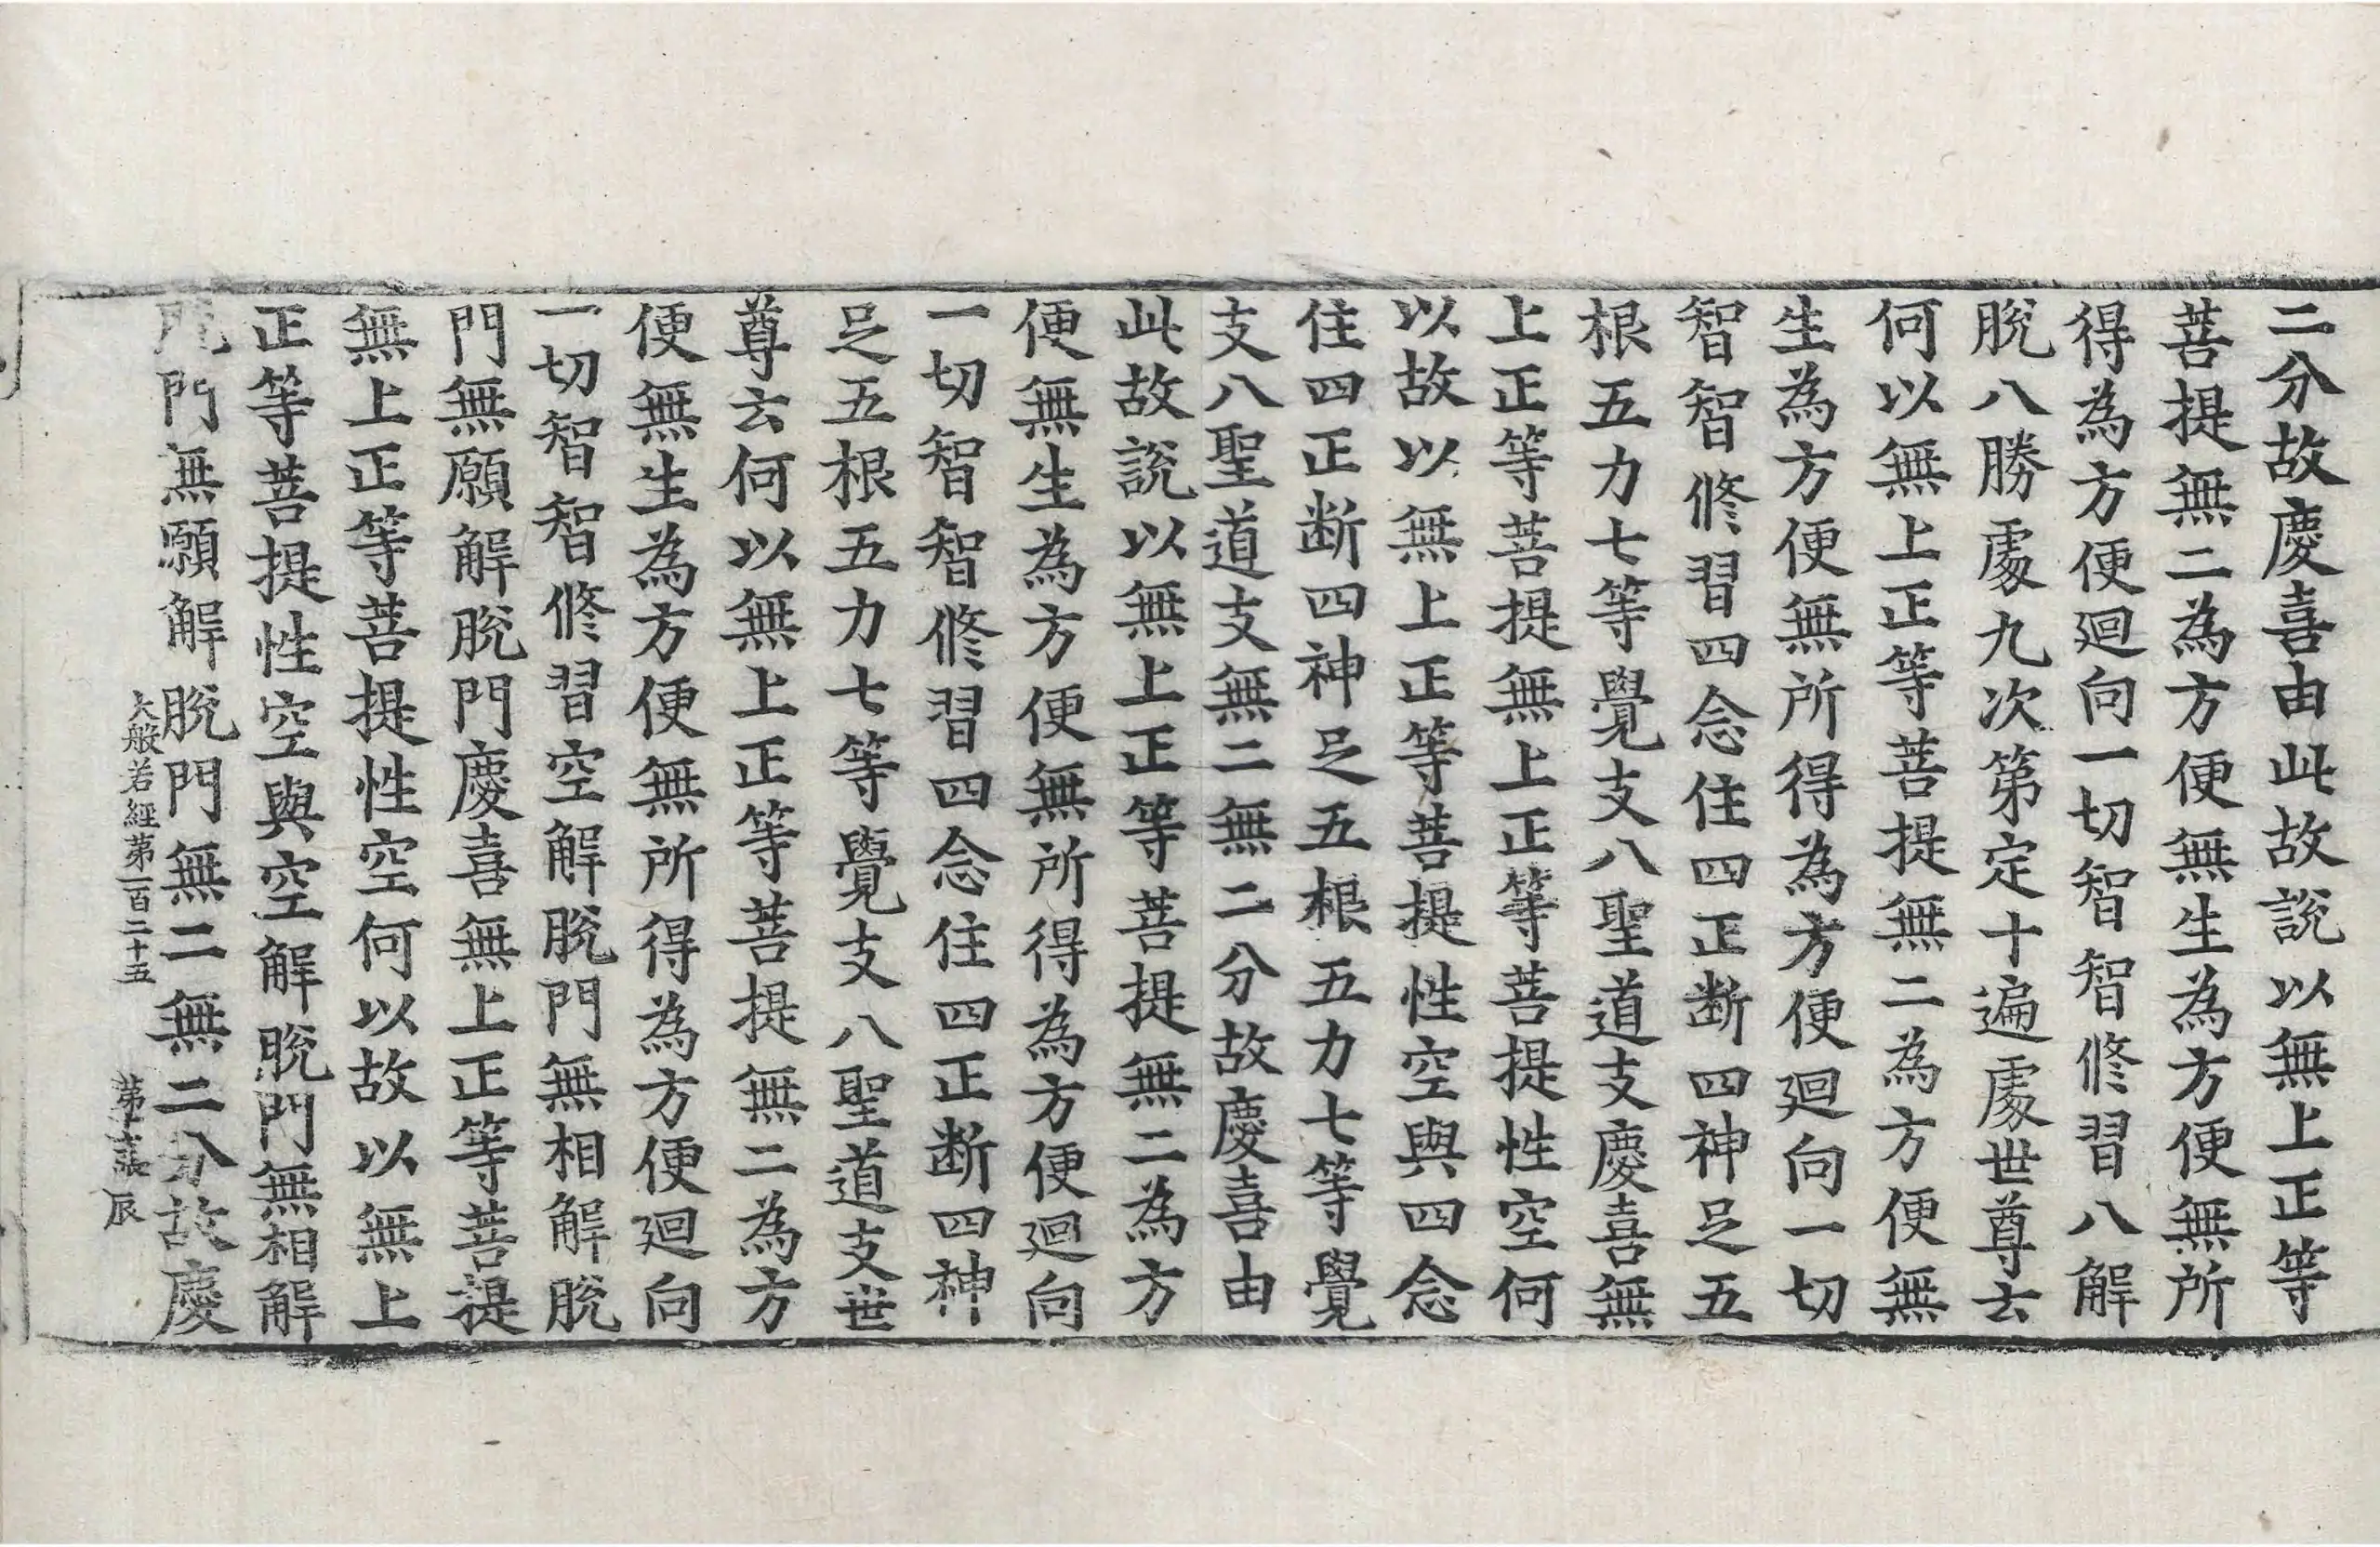 二分故慶喜由此故說以無上正等
菩提無二為方便無生為方便無所
得為方便迴向一切智智修習八解
脫八勝處九次第定十遍處世尊云
何以無上正等菩提無二為方便無
生為方便無所得為方便迴向一切
智智修習四念住四正断四神足五
根五力七等覺支八聖道支慶喜無
上正等菩提無上正等菩提性空何
以故以無上正等菩提性空與四念
住四正断四神足五根五力七等覺
支八聖道支無二無二分故慶喜由
此故說以無上正等菩提無二為方
便無生為方便無所得為方便迴向
一切智智修習四念住四正断四神
足五根五力七等覺支八聖道支世
尊云何以無上正等菩提無二為方
便無生為方便無所得為方便迴向
一切智智修習空解脫門無相解脫
門無願解脫門慶喜無上正等菩提
無上正等菩提性空何以故以無上
正等菩提性空與空解脫門無相解
脫門無願解脫門無二無二分故慶
大般若經第一百二十五 第 張 辰